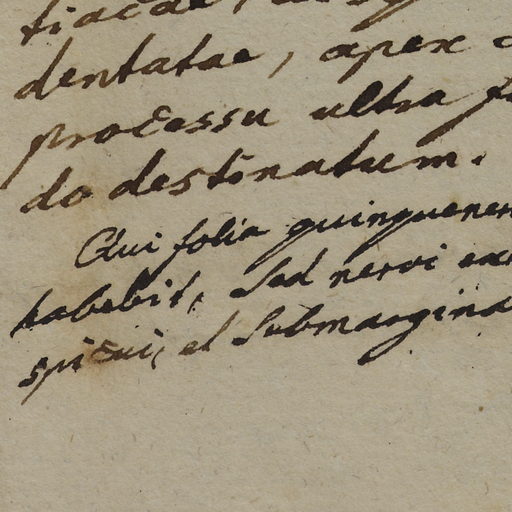 dentatae, apex
processu ultra
do destinatum.
Qui folia quinquener
habebit, sed nervi ex
spicui, et submargina